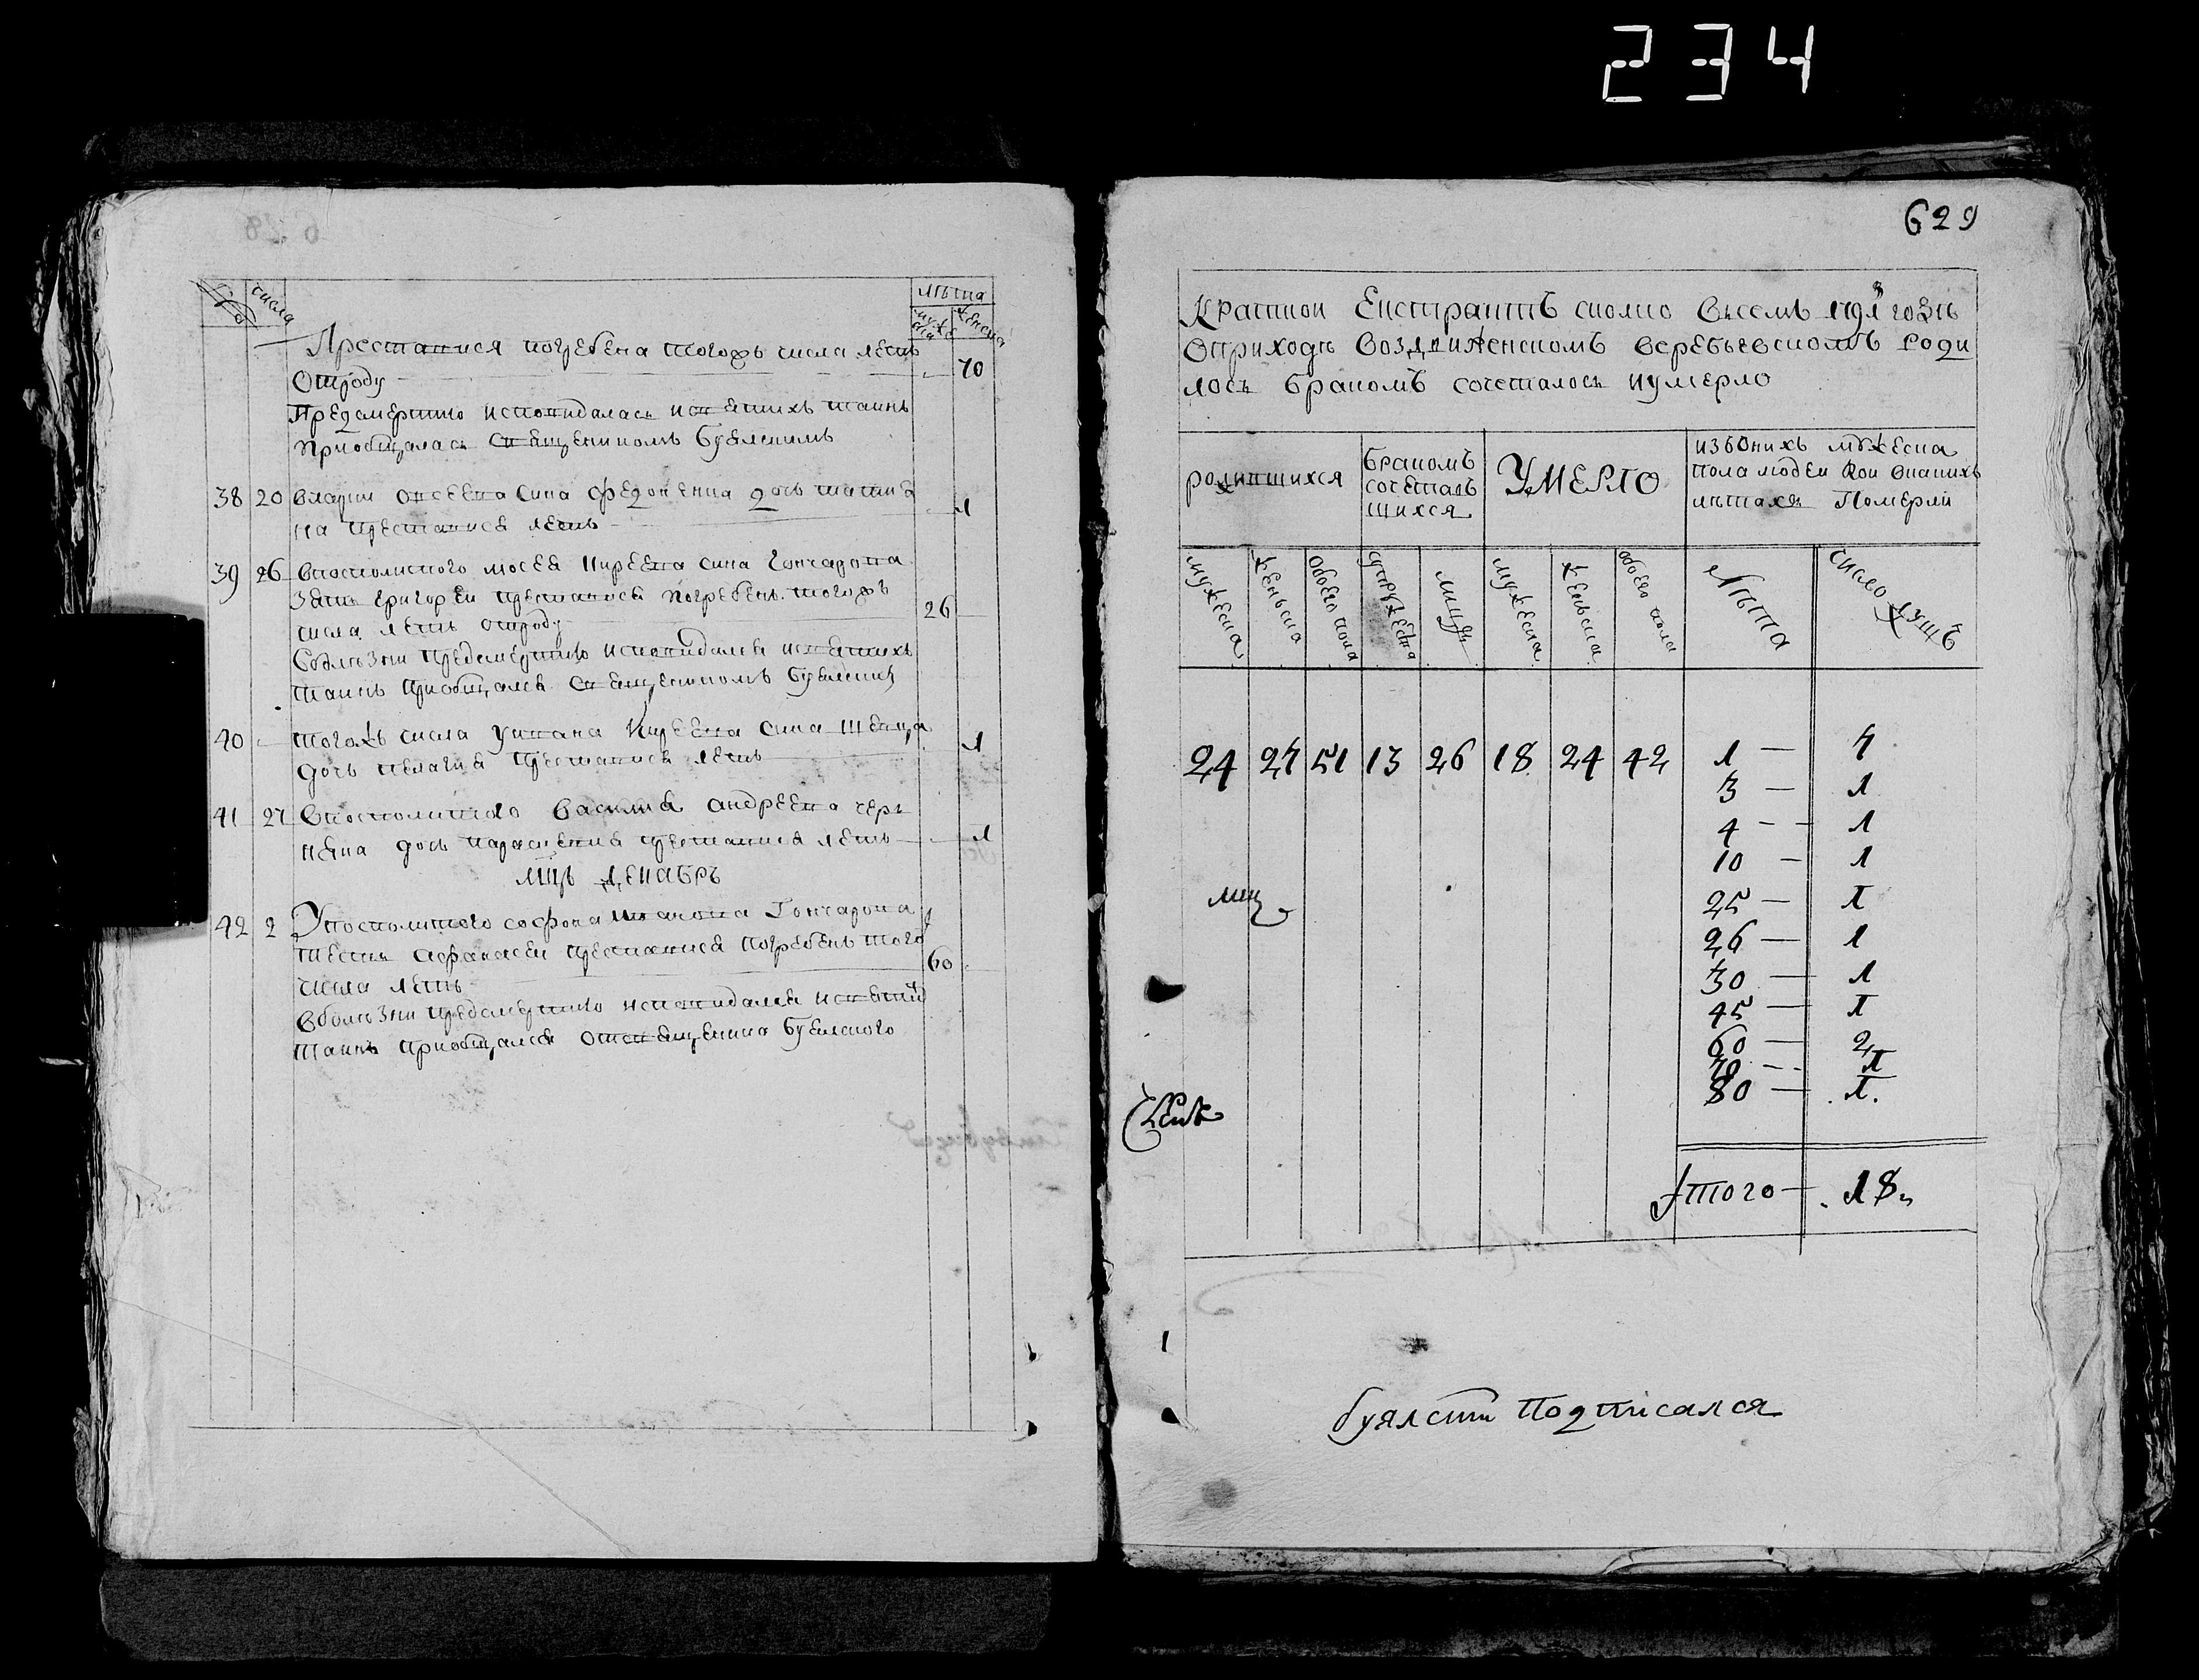 234
числа
лѣта
мужеска
женска
Преставися погребена тогожъ числа летъ
Отроду 70
Предсмертию исповидалась исвятихъ таинъ
приобщалась священикомъ Буялскимъ
38 20 Влации Овсеева сина Федоненка дочь татия
на преставися летъ 1
39 26 Впосполитого Мосея Киреева сина Гончарова
Зять Григорей преставися погребенъ тогожъ
числа летъ отроду 26
Вболѣзни предсмертию исповидался исвятихъ
таинъ приобщался священикомъ Буялским
40 тогожъ числа Уивана Киреева сина Шевца
дочь пелагия преставися летъ 1
41 27 Впосполитого Василия Андреева чер
нена дочь параскевия преставися летъ 1
мцъ декабръ
42 2 Упосполитого софрона Гончарова
тесть Афанасей преставися погребенъ того
числа летъ 60
Вболѣзни предсмертию исповидался исвятих
таинъ приобщался отсвященика Буялского
629
Краткои Екстрактъ сколко всемъ 1793 годѣ
Оприходѣ Воздвиженскомъ Веребьевскомъ Роди
лось бракомъ сочеталось иумерло
родившихся
бракомъ
сочетавъ
шихся
УМЕРЛО
изОнихъ мужеска
пола людеи кои вкакихъ
лѣтахъ Померли
мужеска
женьска
обоего пола
супружества
лицъ
мужеска
женьска
обоего пола
Лѣта
число душъ
24 27 51 13 26 18 24 42
1 — 7
3 — 1
4 — 1
10 — 1
25 — 1
26 — 1
30 — 1
45 — 1
60 — 2
70 — 1
80 — 1
Итого — 18
буялски Подписался